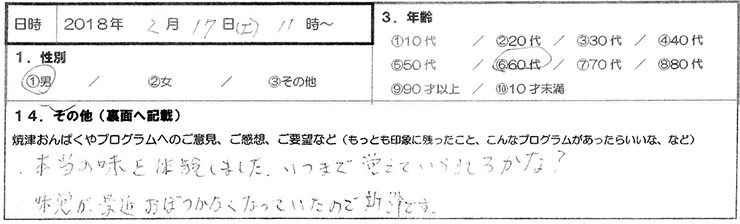 日時 2018年 2月 17日(土) 11時～
1．性別
①男 ／ ②女 ／ ③その他
3．年齢
①10代 ／ ②20代 ／ ③30代 ／ ④40代
⑤50代 ／ ⑥60代 ／ ⑦70代 ／ ⑧80代
⑨90才以上 ／ ⑩10才未満
14．その他（裏面へ記載）
焼津おんぱくやプログラムへのご意見、ご感想、ご要望など（もっとも印象に残ったこと、こんなプログラムがあったらいいな、など）
．本当の味を体験しました．いつまで覚えていられるかな？
．味覚が最近おぼつかなくなっていたので新鮮です。